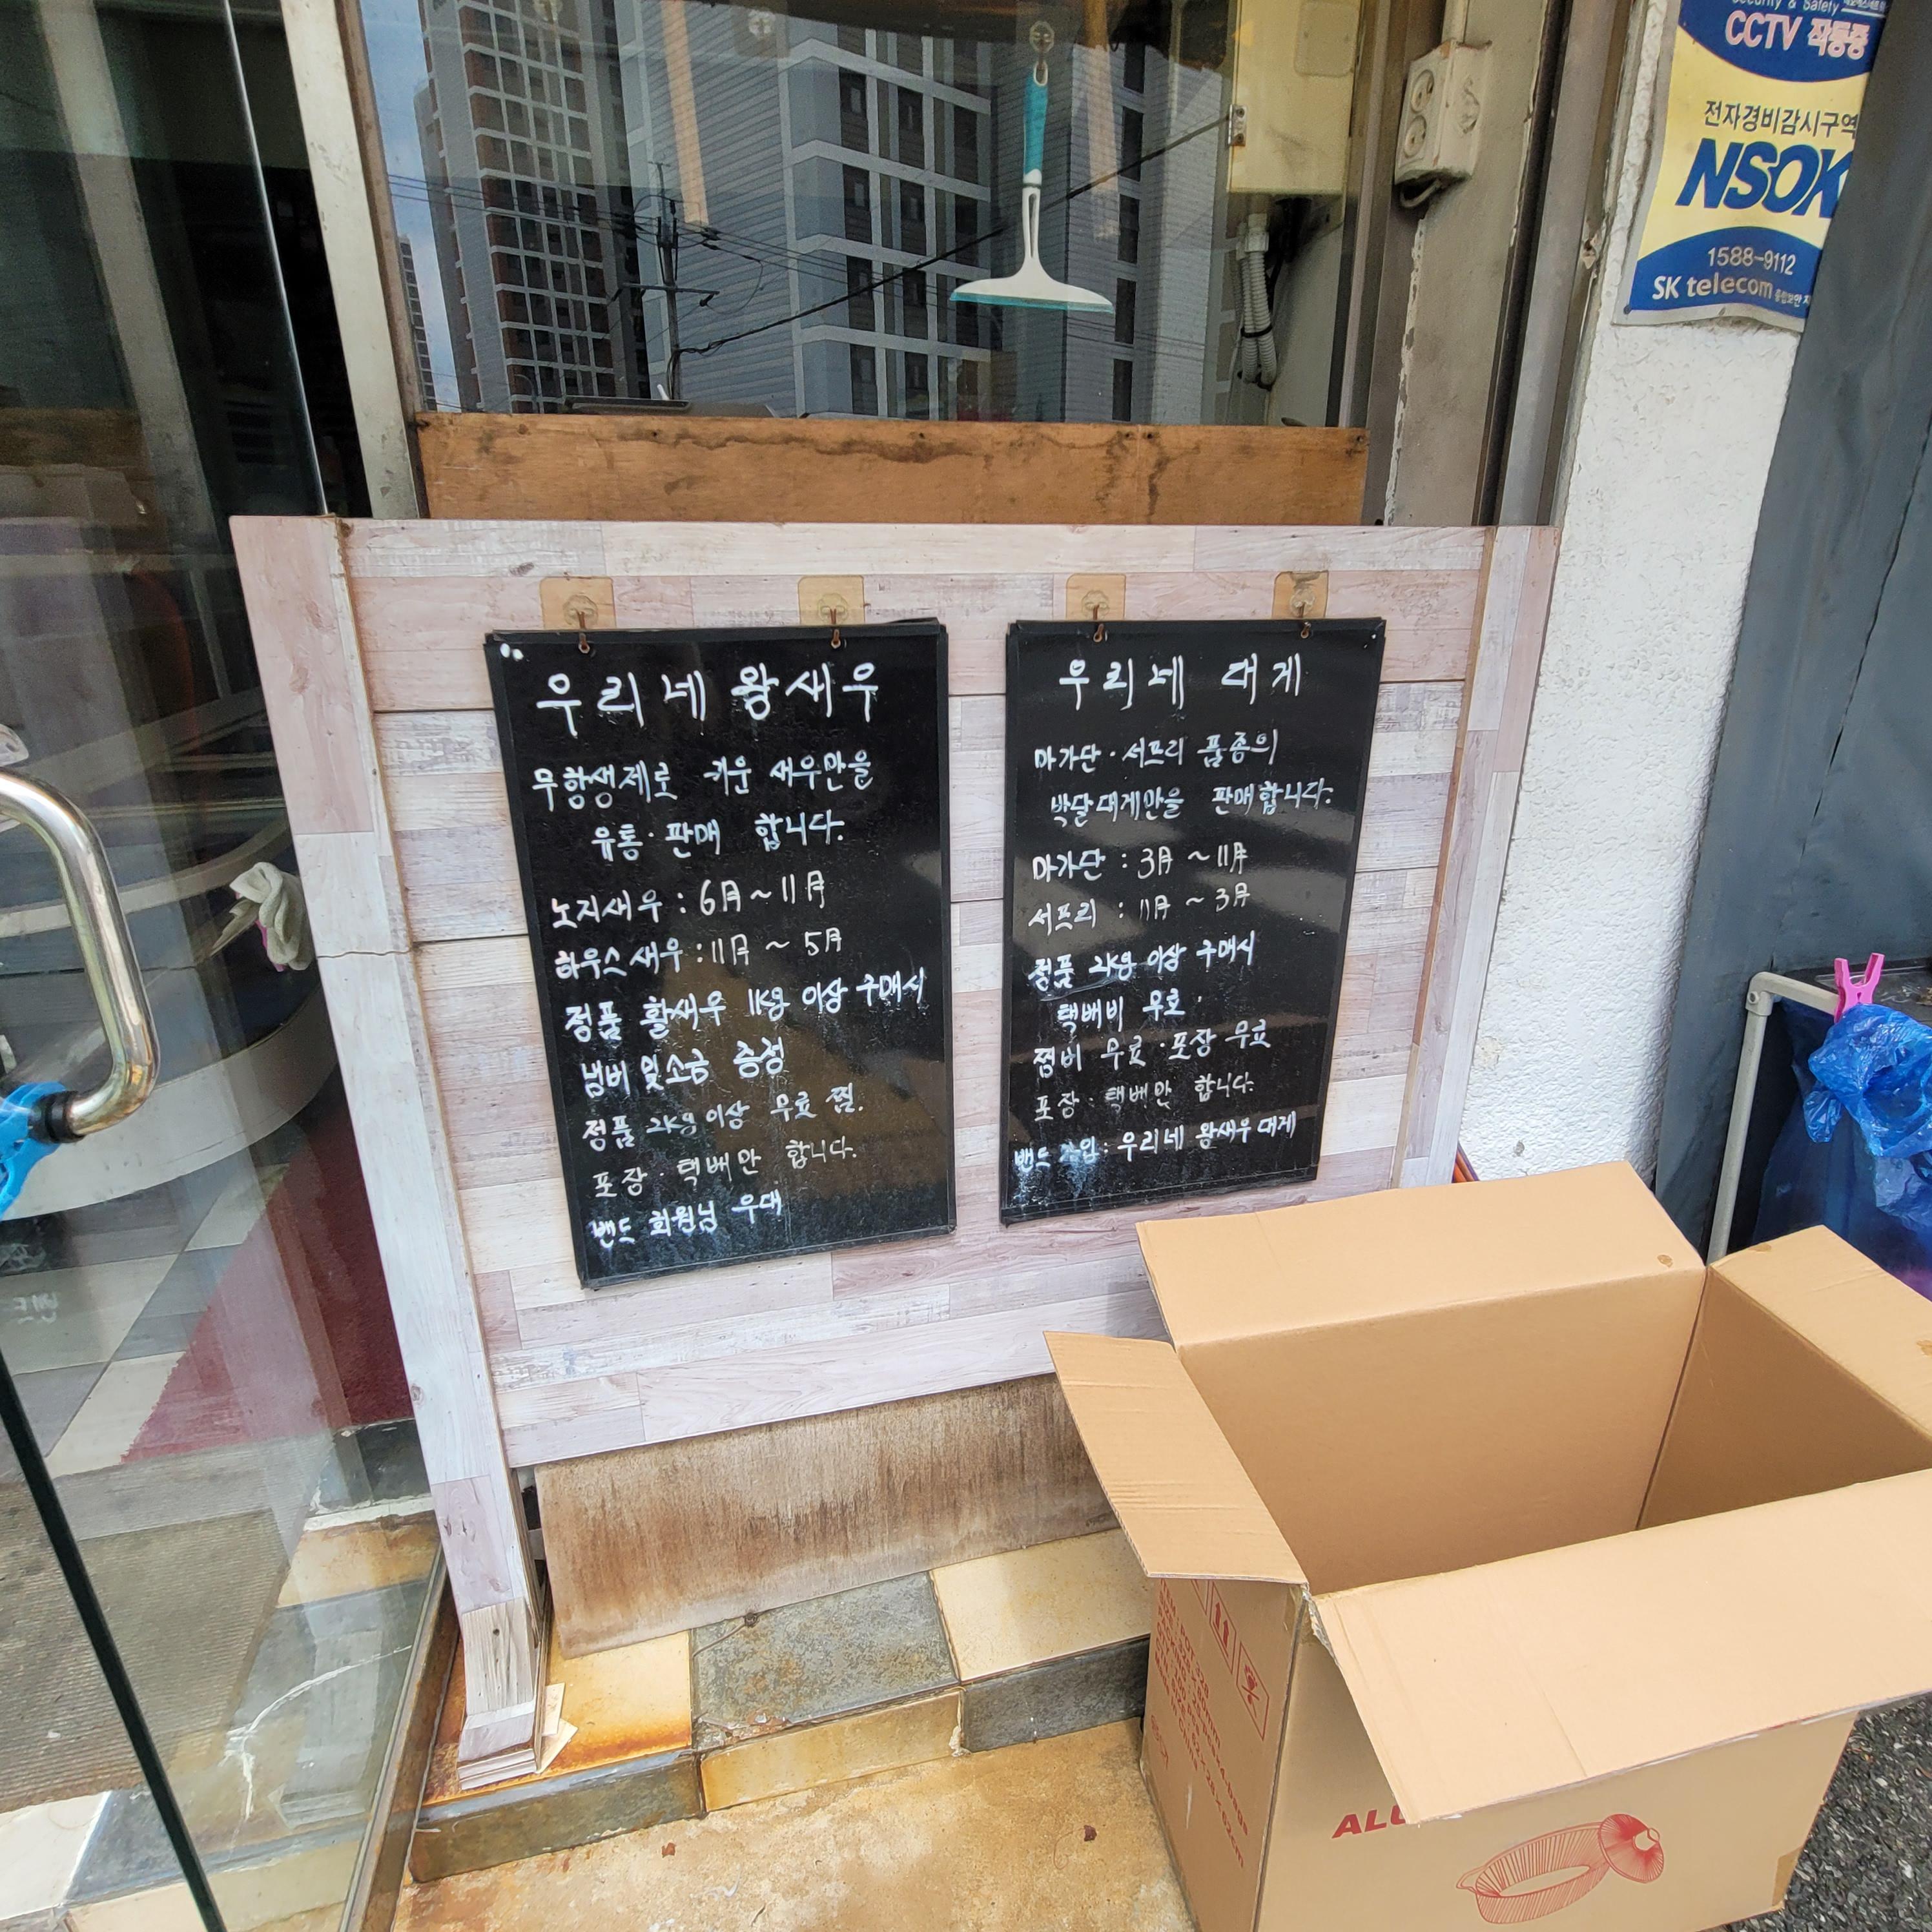 Security & Safety
CCTV 작동중
전자경비감시구역
NSOK
1588-9112
SK telecom
우리네 왕새우
무항생제로 키운 새우만을
유통·판매 합니다.
노지새우 : 6月~11月
하우스새우 : 11月 ~ 5月
정품 활새우 1kg 이상 구매시
냄비 및 소금 증정
정품 2kg 이상 무료 찜.
포장·택배만 합니다.
밴드 회원님 우대
우리네 대게
마가단·서프리 품종의
박달대게만을 판매합니다.
마가단 : 3月 ~ 11月
서프리 : 11月 ~ 3月
정품 2kg 이상 구매시
택배비 무료.
찜비 무료·포장 무료
포장·택배만 합니다.
밴드 가입 : 우리네 왕새우 대게